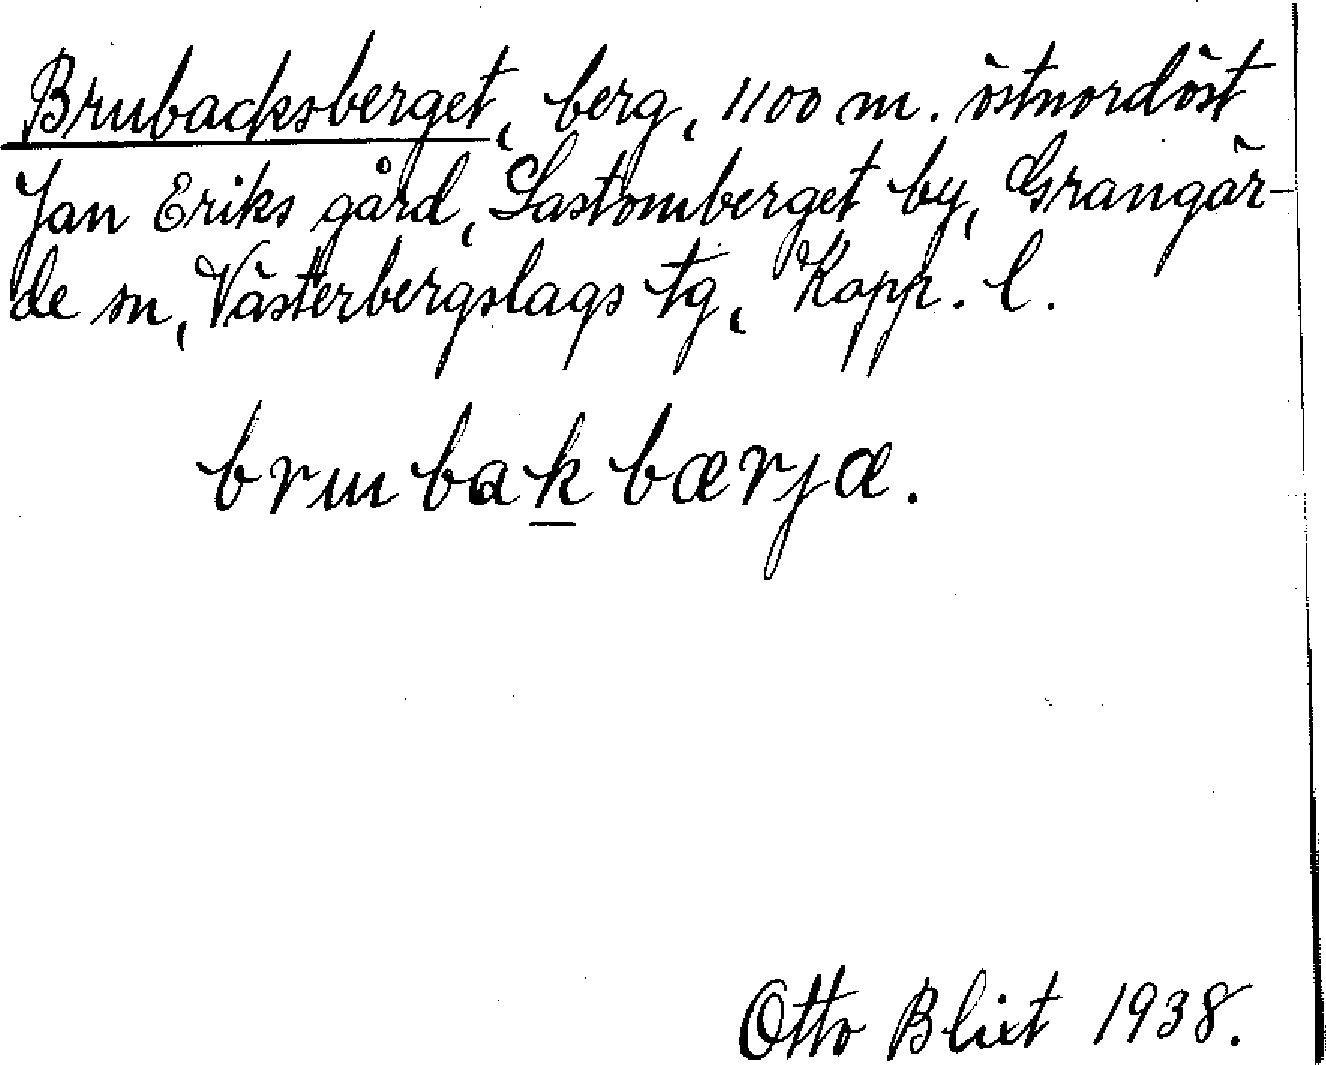 Brubacksberget, berg, 1100 m. östnordöst
Jan Eriks gård, Lastomberget by, Grangär-
de sn, Västerbergslags tg, Kopp. l.
brɯbakbærjæ.
Otto Blixt 1938.